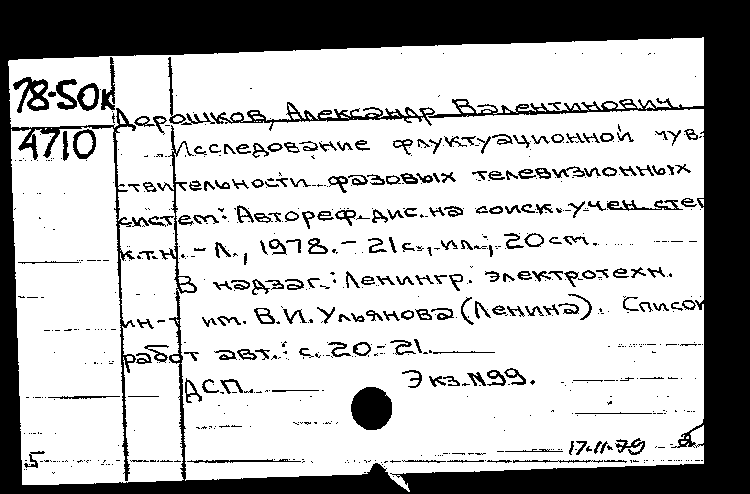 78-50к
4710
Дорошков, Александр Валентинович.
Исследование флуктуационной чув-
ствительности фазовых телевизионных
систем: Автореф. дис. на соиск. учен. степ
к.т.н. - Л., 1978. - 21 с., ил.; 20 cm.
В надзаг.: Ленингр. электротехн.
ин-т им. В.И. Ульянова (Ленина). Список
работ авт.: с. 20-21.
ДСП. Экз. N99.
5 17-11-79